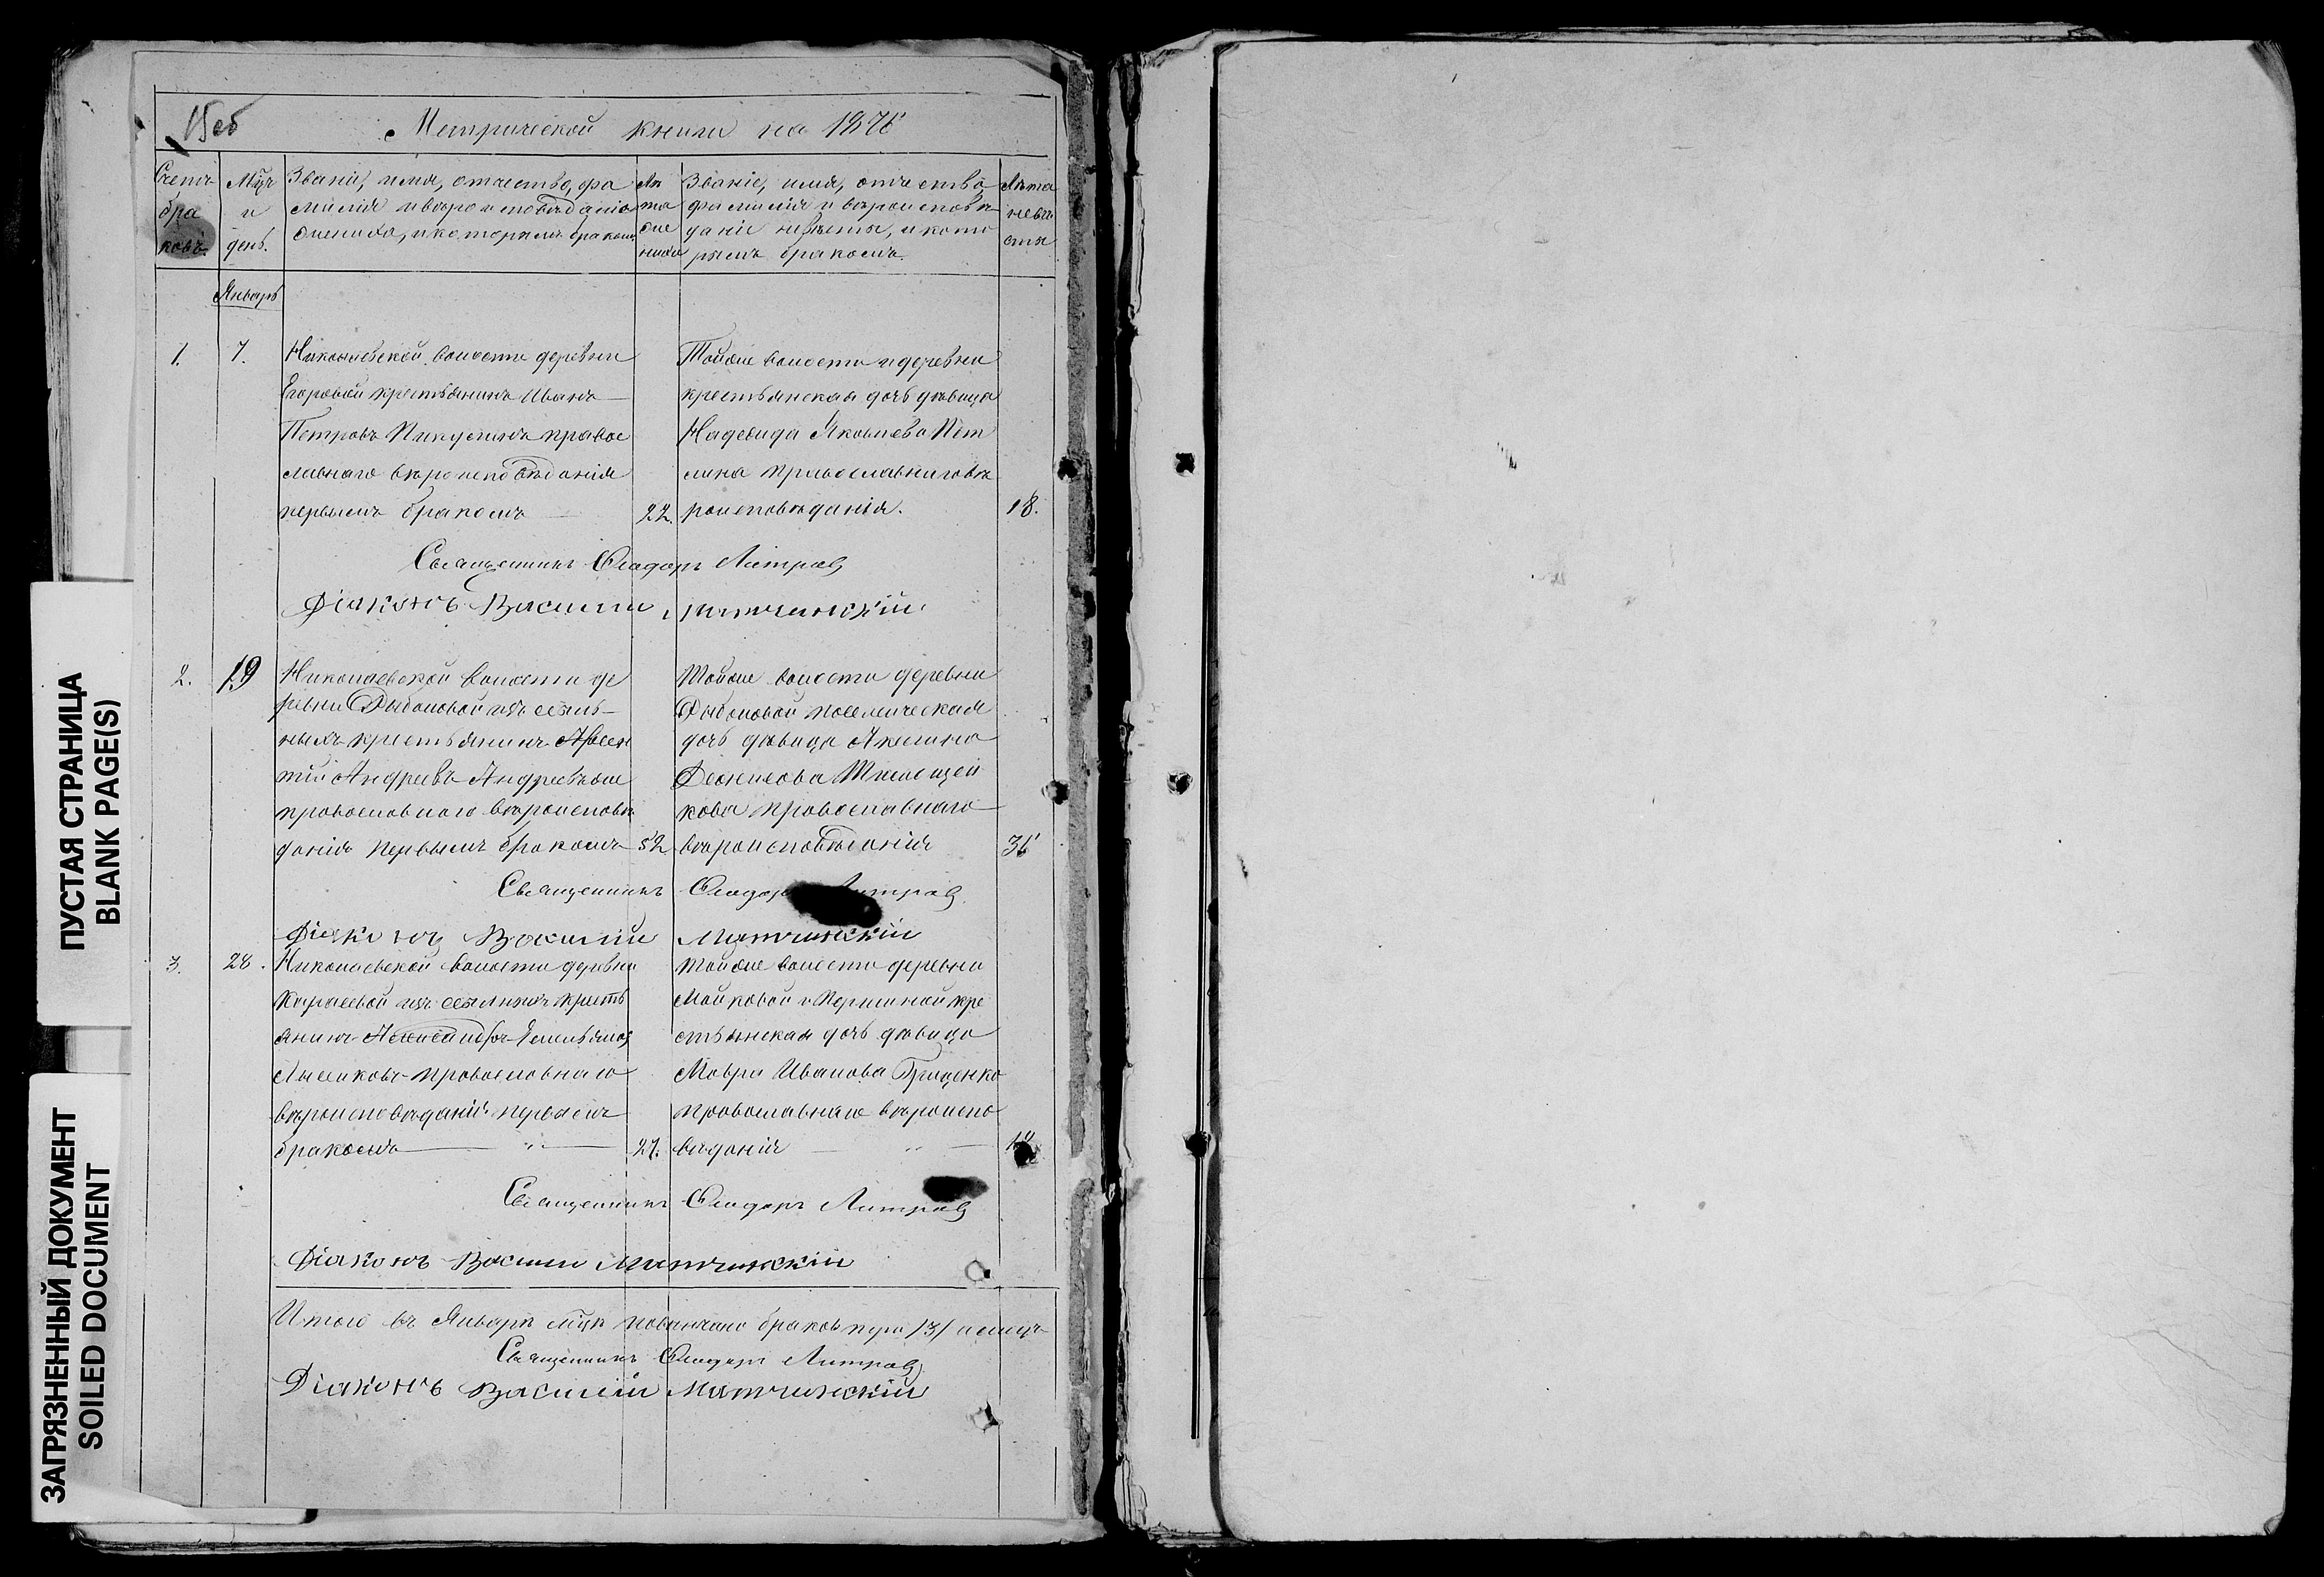 15 об
Метрической книги на 1876
Счетъ браковъ.
Мцъ и день.
Званіе, имя, отчество, фа
милія и вѣроисповѣданіе
жениха, и которымъ бракомъ
Лѣ
та
же
ниха
Званіе, имя, отчество,
фамилія и вѣроисповѣ
даніе невѣсты, и кото
рымъ бракомъ.
Лѣта
невѣ
сты
Январь
1.
7.
Николаевской волости деревни
Егоровой крестьянинъ Иванъ
Петровъ правос
лавнаго вѣроисповѣданія
первымъ бракомъ
22.
Тойже волости и деревни
крестьянская дочь дѣвица
Надежда Яковлева
православнаго вѣ
роисповѣданія.
18.
Священникъ Ѳеодоръ
Діаконъ Василій
2.
19
Николаевской волости де
ревни изъ ссыль
ныхъ крестьянинъ Арсен
тій Андреевъ Андреевъ же
православнаго вѣроисповѣ
данія первымъ бракомъ
52
Тойже волости деревни
поселенческая
дочь дѣвица Акилина
Денисова
кова православнаго
вѣроисповѣданія
36
Священникъ Ѳеодоръ
Діаконъ Василій Матчинскій
3.
28.
Николаевской волости деревни
изъ ссыльныхъ кресть
янинъ Александръ Емельяновъ
Лысиковъ православнаго
вѣроисповѣданія первымъ
бракомъ
27.
Тойже волости деревни
кре
стьянская дочь дѣвица
Мавра Иванова Гриценко
православнаго вѣроиспо
вѣданія
Священникъ Ѳеодоръ
Діаконъ Василій Матчинскій
Итого въ Январѣ мцѣ повѣнчано браковъ три /3/
Священникъ Ѳеодоръ
Діаконъ Василій Матчинскій
ПУСТАЯ СТРАНИЦА
BLANK PAGE(S)
ЗАГРЯЗНЕННЫЙ ДОКУМЕНТ
SOILED DOCUMENT